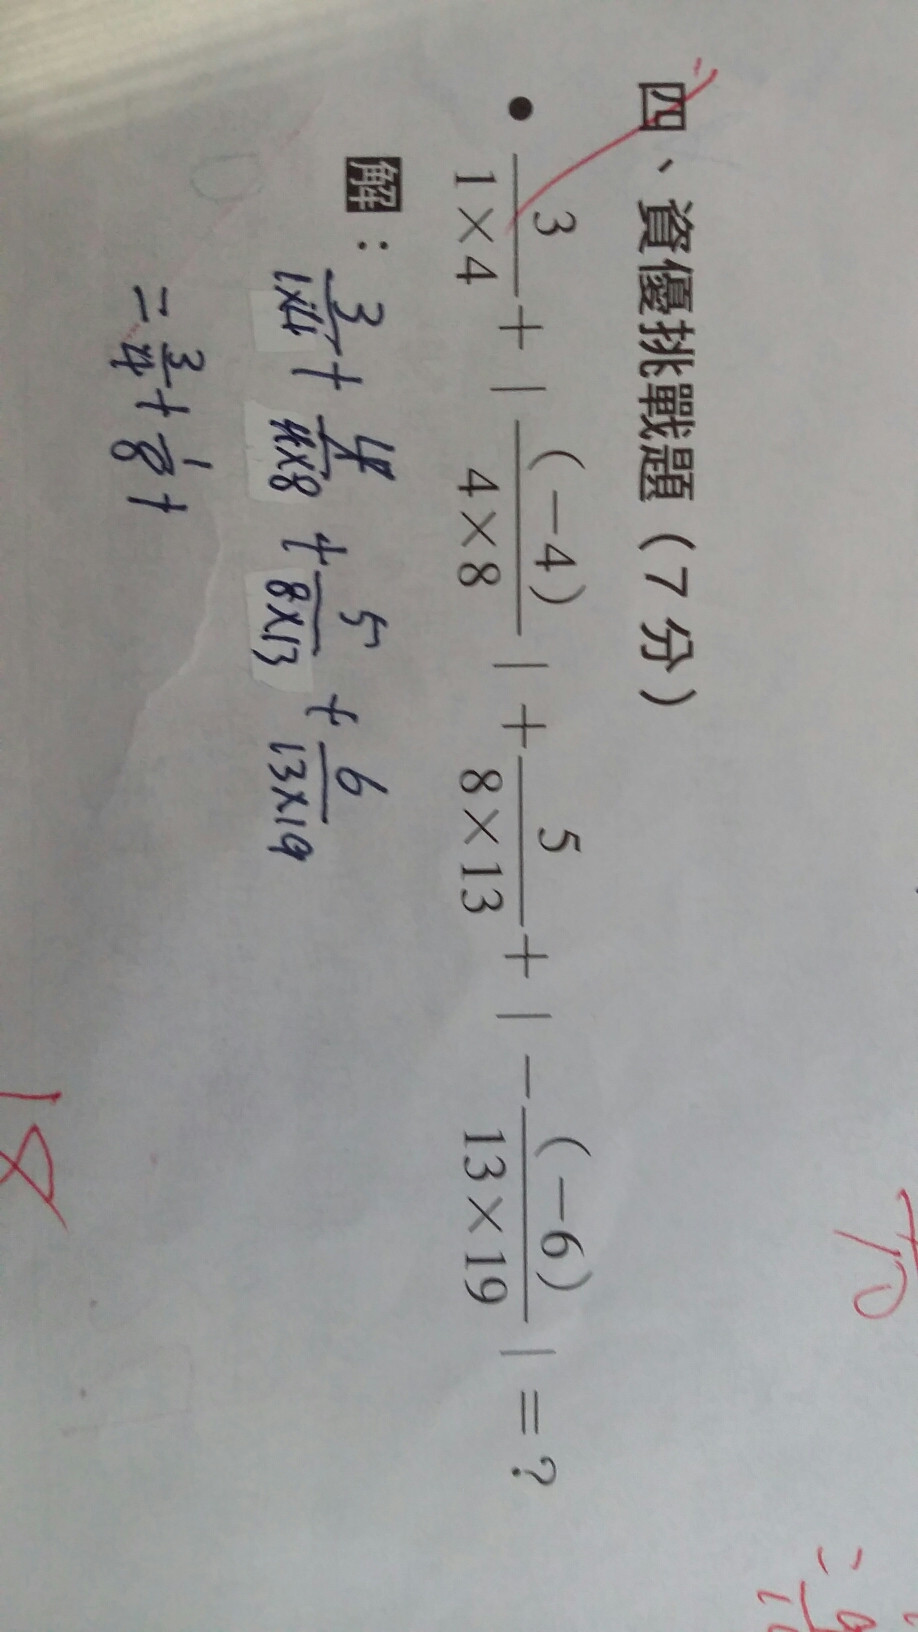 四、資優挑戰題(7分)
• 3/(1×4) + |(-4)/(4×8)| + 5/(8×13) + |-(-6)/(13×19)| = ?
解: 3/(1×4) + 4/(4×8) + 5/(8×13) + 6/(13×19)
= 3/4 + 1/8 +